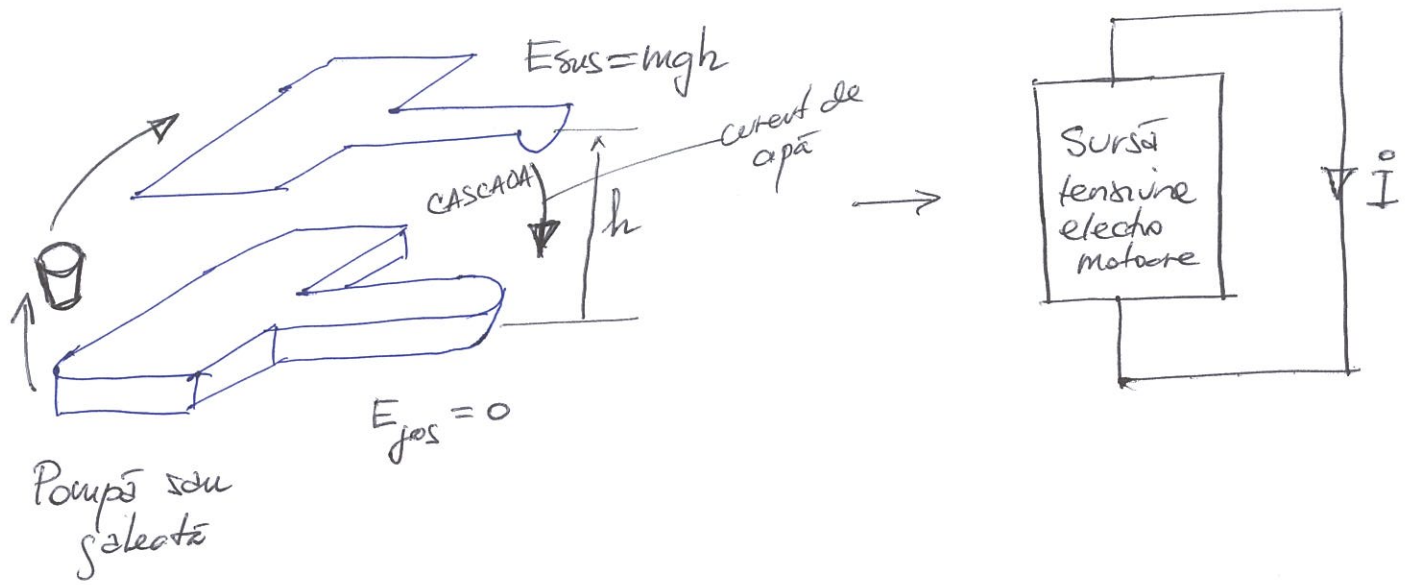 Esus=mgh
curent de
apă
CASCADA
h
Ejos = 0
Pompă sau
găleată
Sursă
tensiune
electro
motoare
I